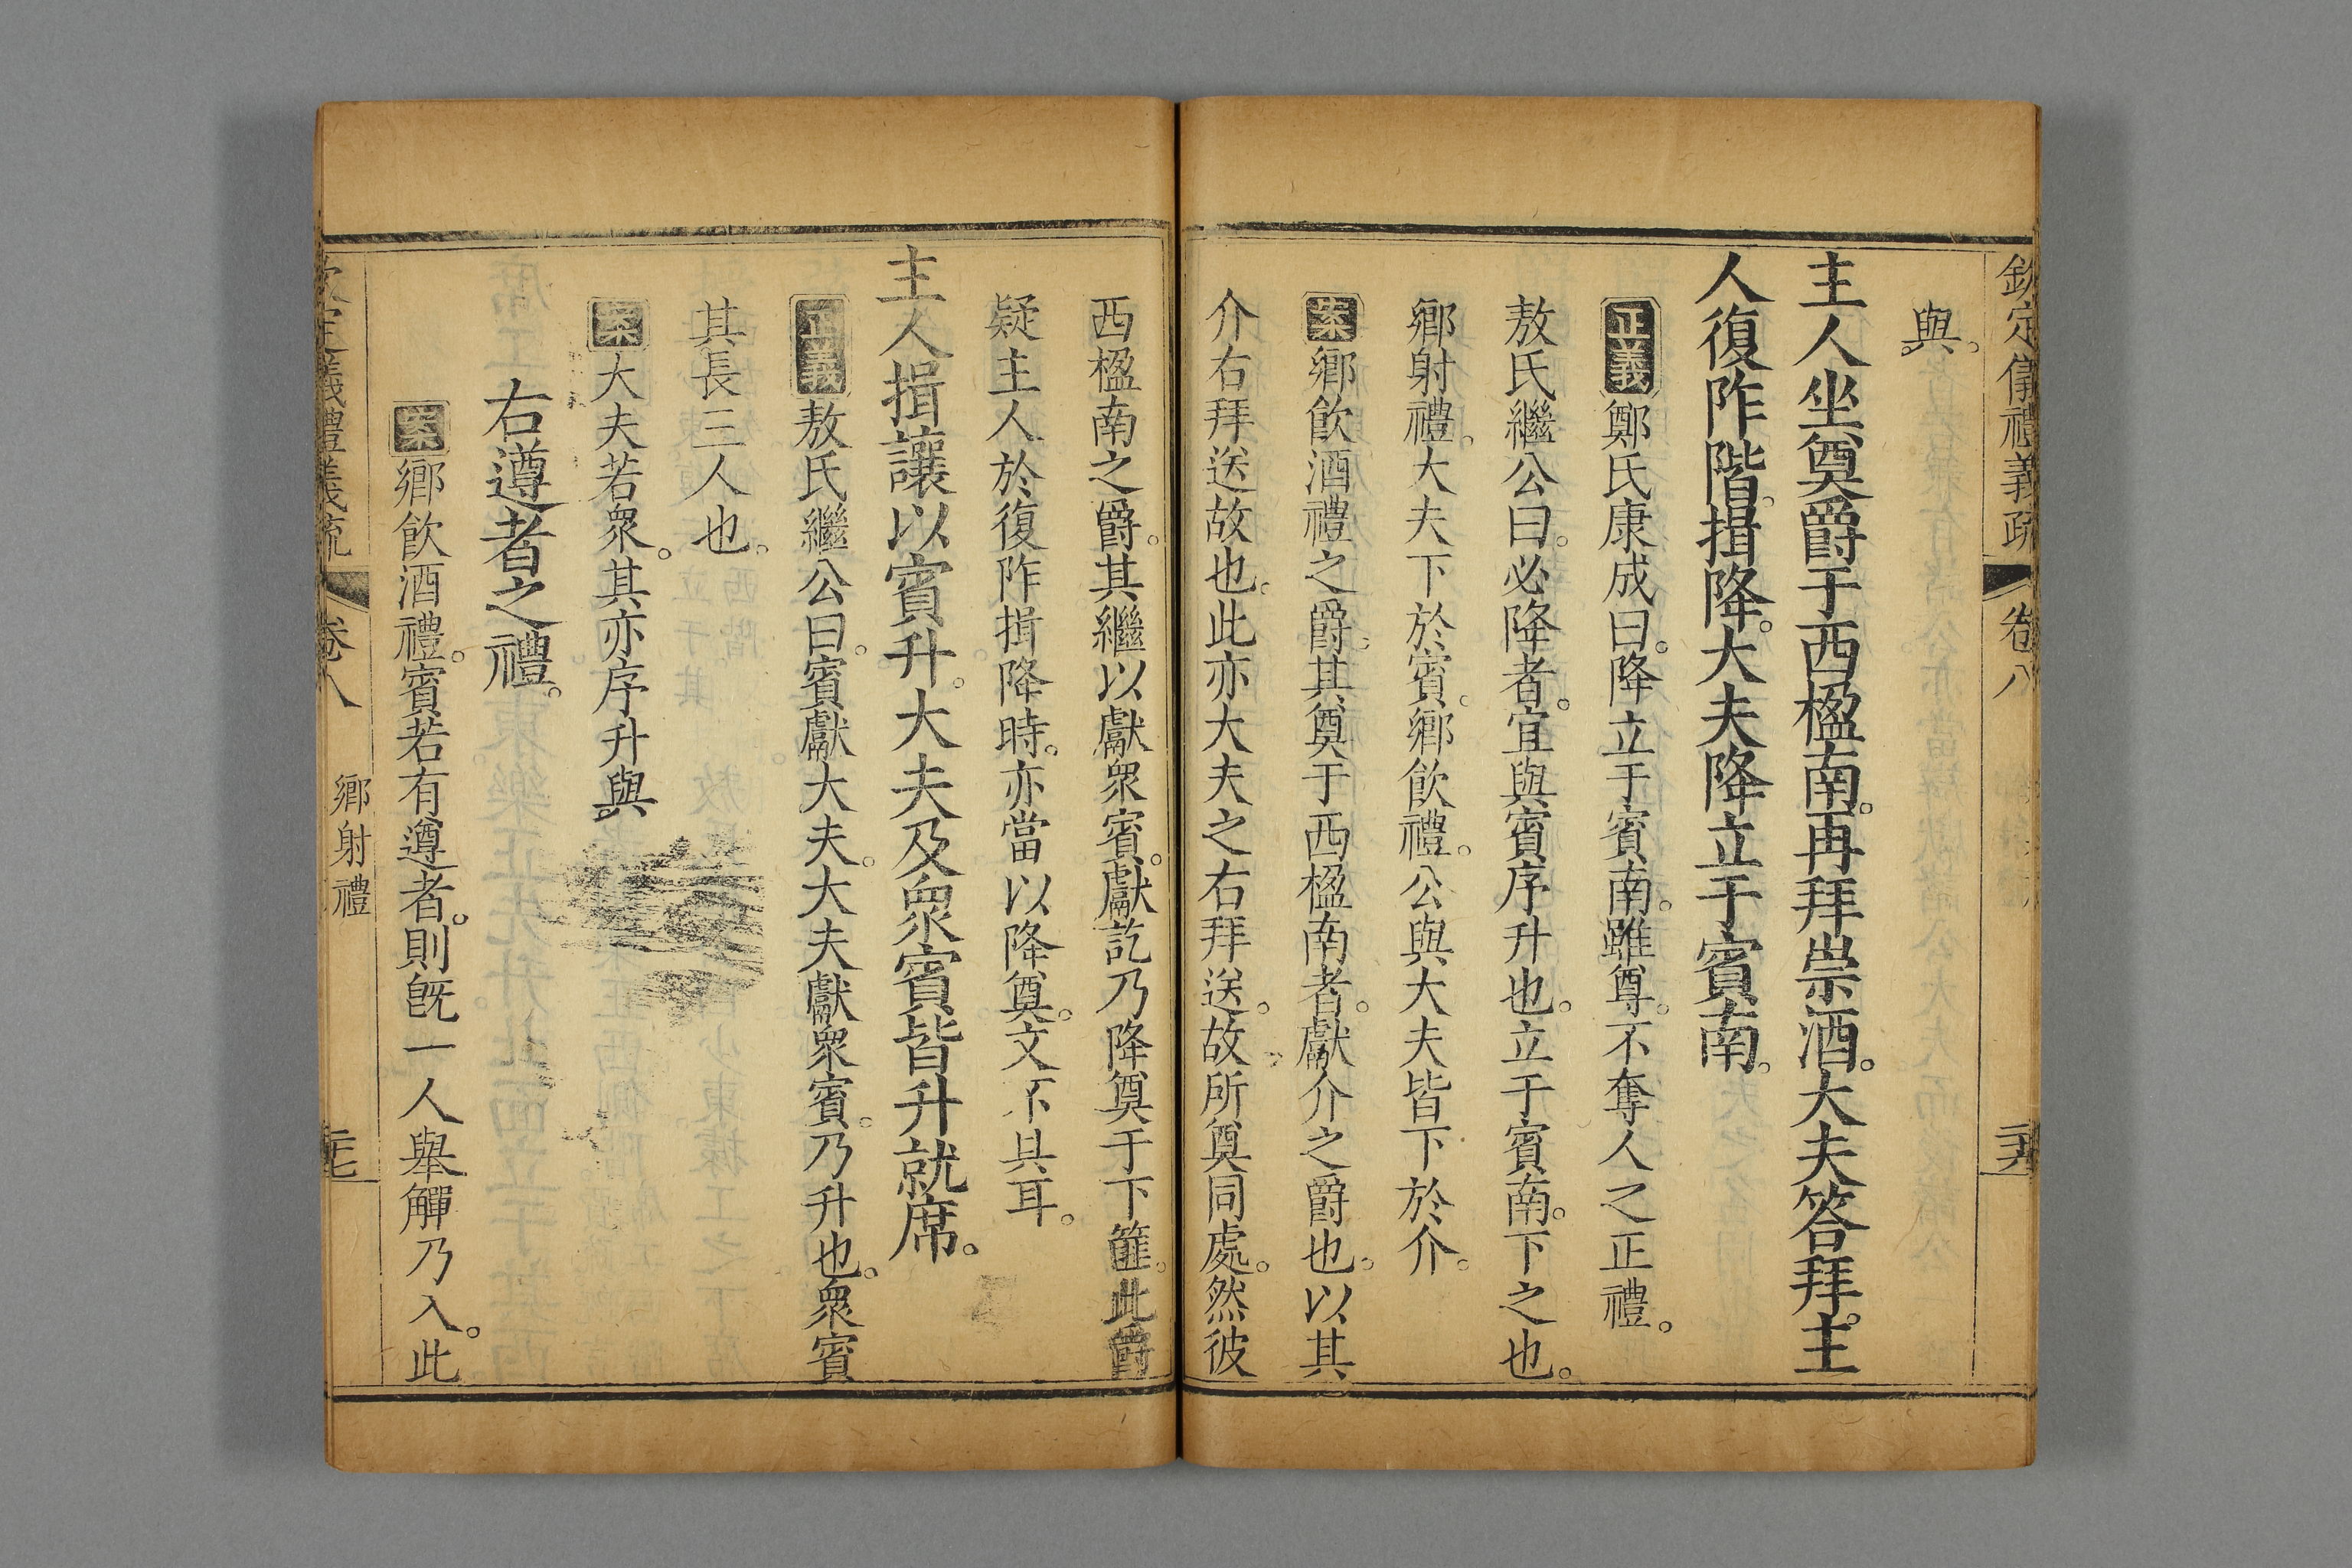 欽定儀禮義疏 卷八
與。
主人坐奠爵于西楹南。再拜崇酒。大夫答拜。主
人復阼階。揖降。大夫降立于賓南。
正義鄭氏康成曰。降立于賓南。雖尊。不奪人之正禮。
敖氏繼公曰。必降者。宜與賓序升也。立于賓南。下之也。
鄉射禮。大夫下於賓。鄉飲禮。公與大夫皆下於介。
案鄉飲酒禮之爵。其奠于西楹南者。獻介之爵也。以其
介右拜送故也。此亦大夫之右拜送。故所奠同處。然彼
西楹南之爵。其繼以獻眾賓。獻訖乃降奠于下篚。此爵
疑主人於復阼揖降時。亦當以降奠。文不具耳。
主人揖讓以賓升。大夫及眾賓皆升就席。
正義敖氏繼公曰。賓獻大夫。大夫獻眾賓。乃升也。眾賓
其長三人也。
案大夫若眾。其亦序升與。
右遵者之禮。
案鄉飲酒禮。賓若有遵者。則旣一人舉觶乃入。此
欽定儀禮義疏 卷八 鄉射禮 二十七